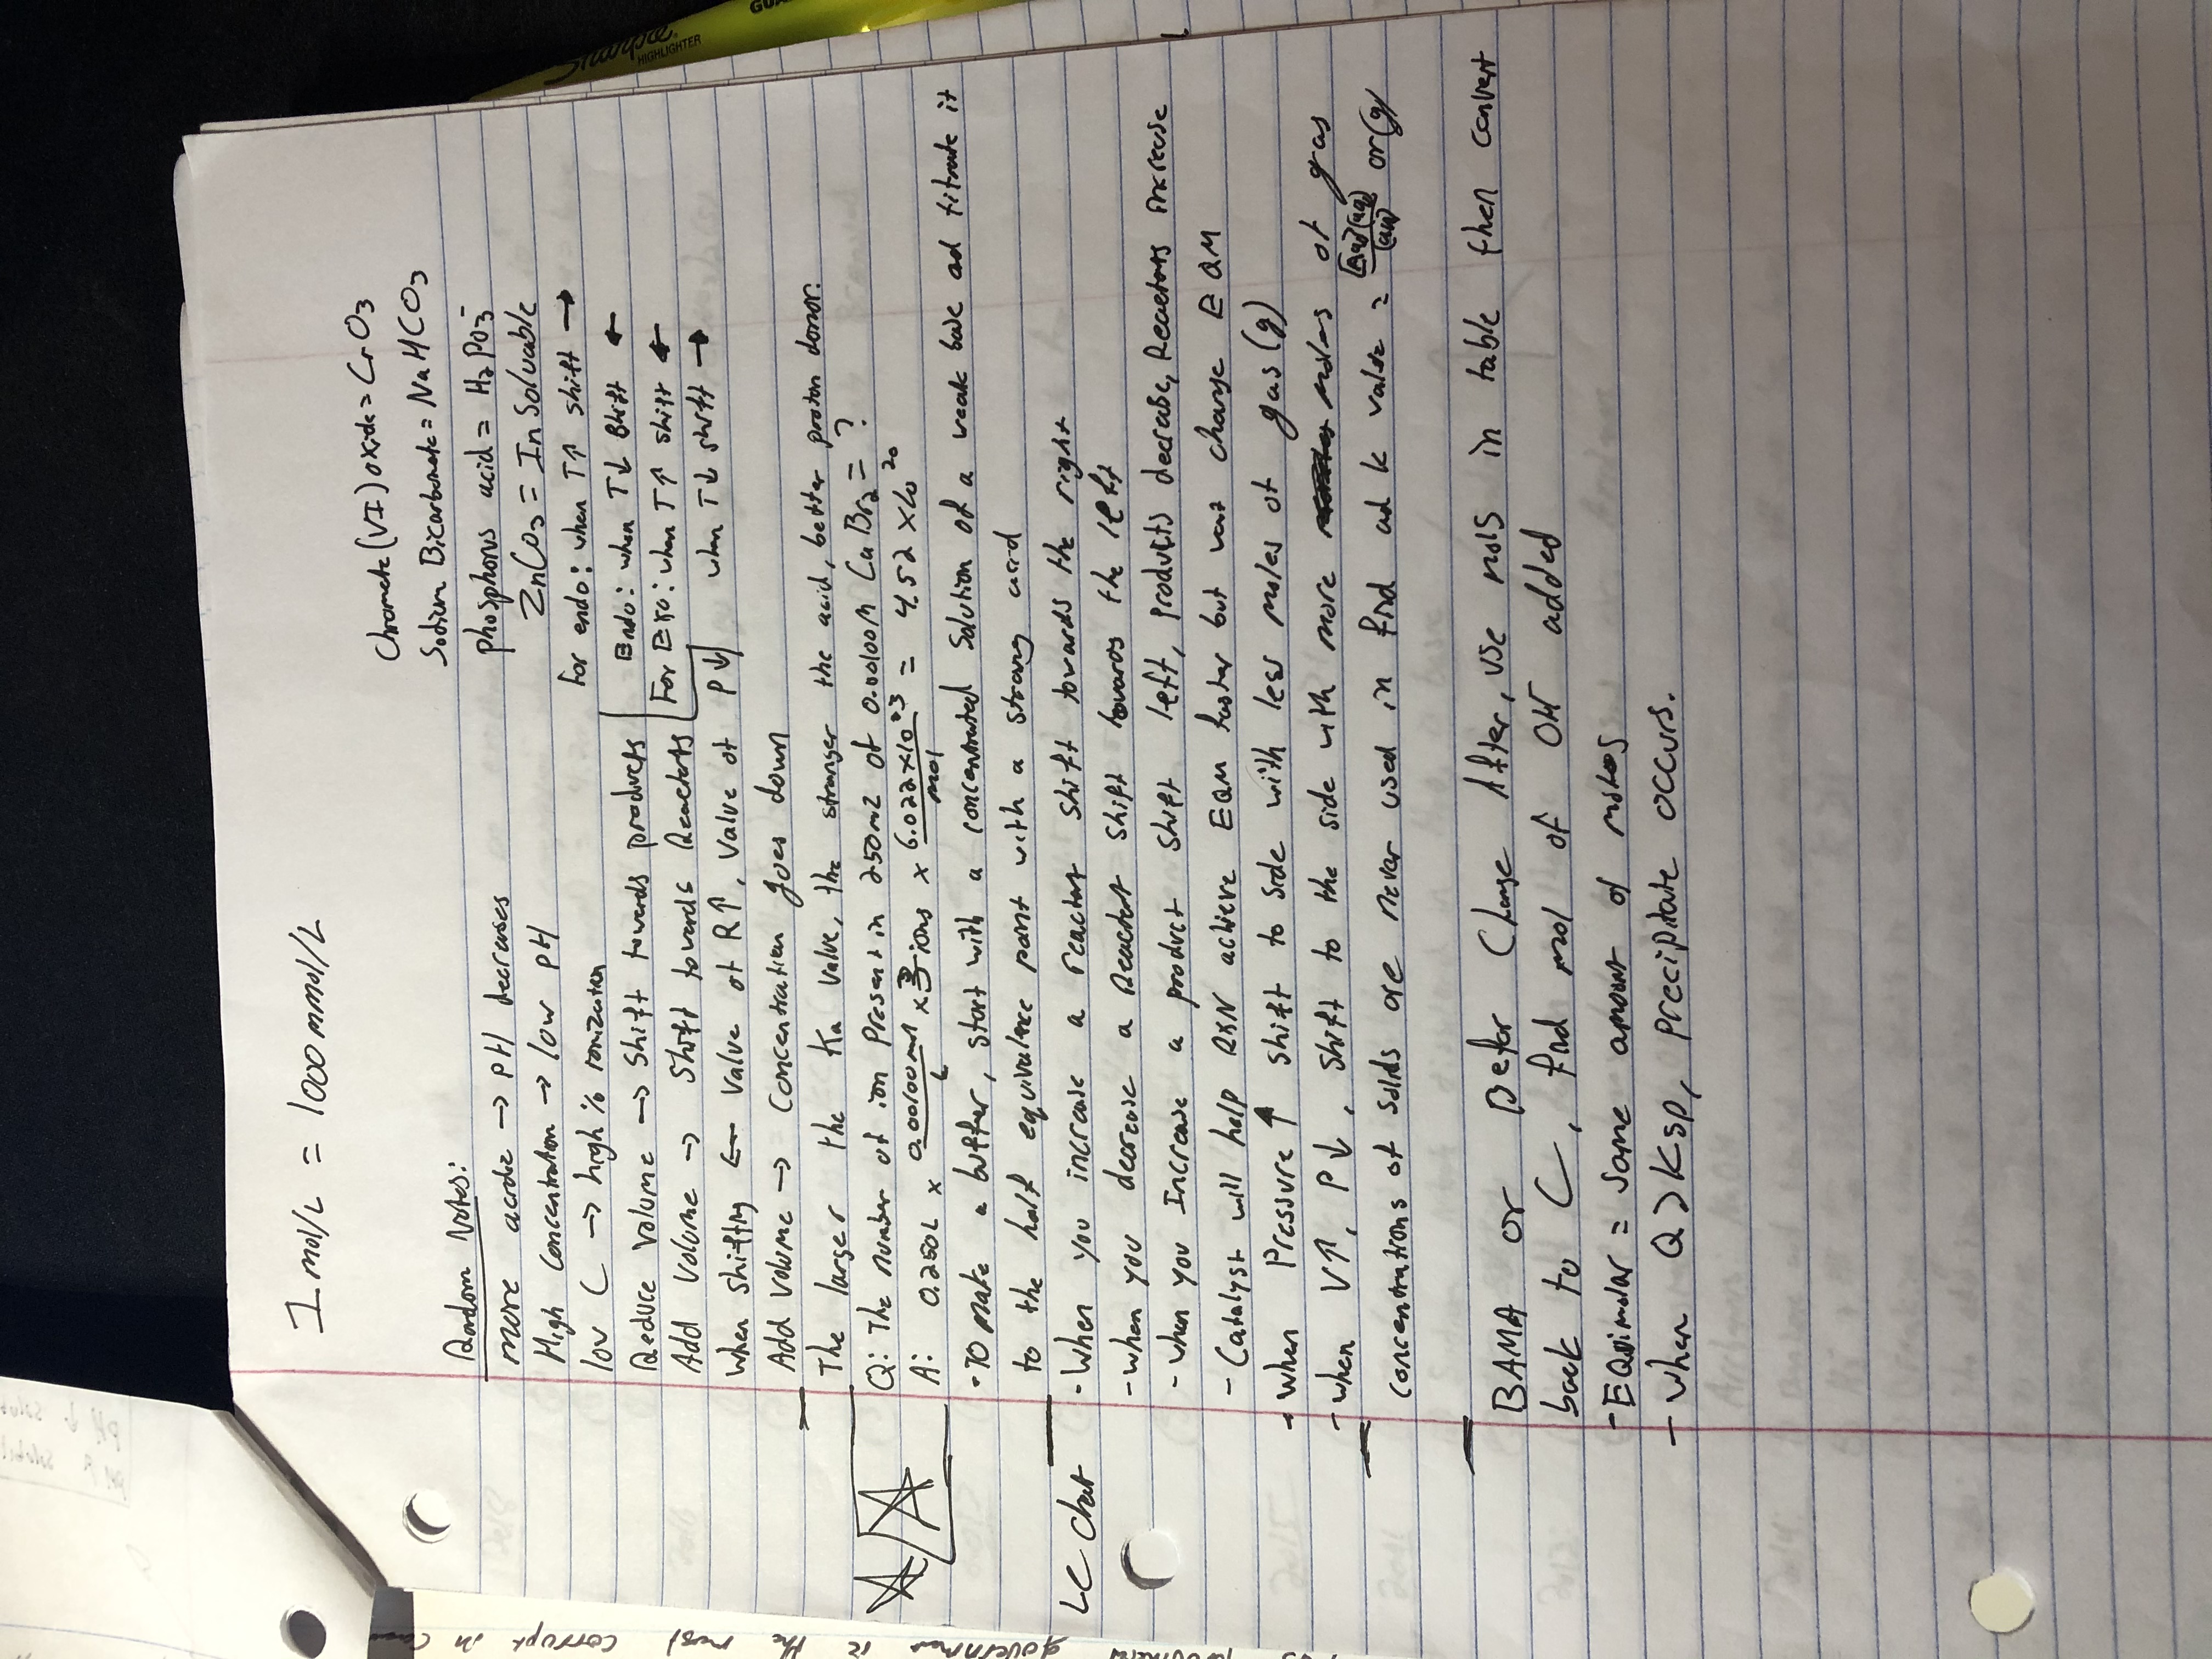 1 mol/L = 1000 mmol/L
Chromate(VI) oxide = CrO3
Sodium Bicarbonate = NaHCO3
Random Notes:
phosphorus acid = H2PO3-
more acidic → pH decreases
ZnCO3 = InSoluable
High Concentration → low pH
For endo: when T↑ shift →
low C → high % ionization
Endo: when T↓ shift ←
Reduce volume → shift towards products
For Exo: when T↑ shift ←
Add volume → shift towards Reactants
when T↓ shift →
when shifting ← value of R↑, value of P↓
Add volume → concentration goes down
The larger the Ka value, the stronger the acid, better proton donor.
Q: The number of ion present in 250mL of 0.00100M CaBr2 = ?
A: 0.250L x 0.00100mol/L x 3 ions x 6.022x10^23/mol = 4.52 x10^20
- To make a buffer, start with a concentrated solution of a weak base ad titrate it
to the half equivalence point with a strong acid
LC chat
- When you increase a reactant shift towards the right
- when you decrease a Reactant shift towards the left
- when you Increase a product shift left, products decrease, Reactants increase
- Catalyst will help RXN achieve EQM faster but wont change EQM
- when Pressure ↑ shift to side with less moles of gas (g)
- when V↑, P↓, shift to the side with more moles of gas
concentrations of solids are never used in find ad k value = (aq) or (g)
BAMA or Befor Change After, use mols in table then convert
back to C, find mol of OH added
- EQuimolar = Same amount of moles
- when Q > Ksp, precipitate occurs.
Sharpie
HIGHLIGHTER